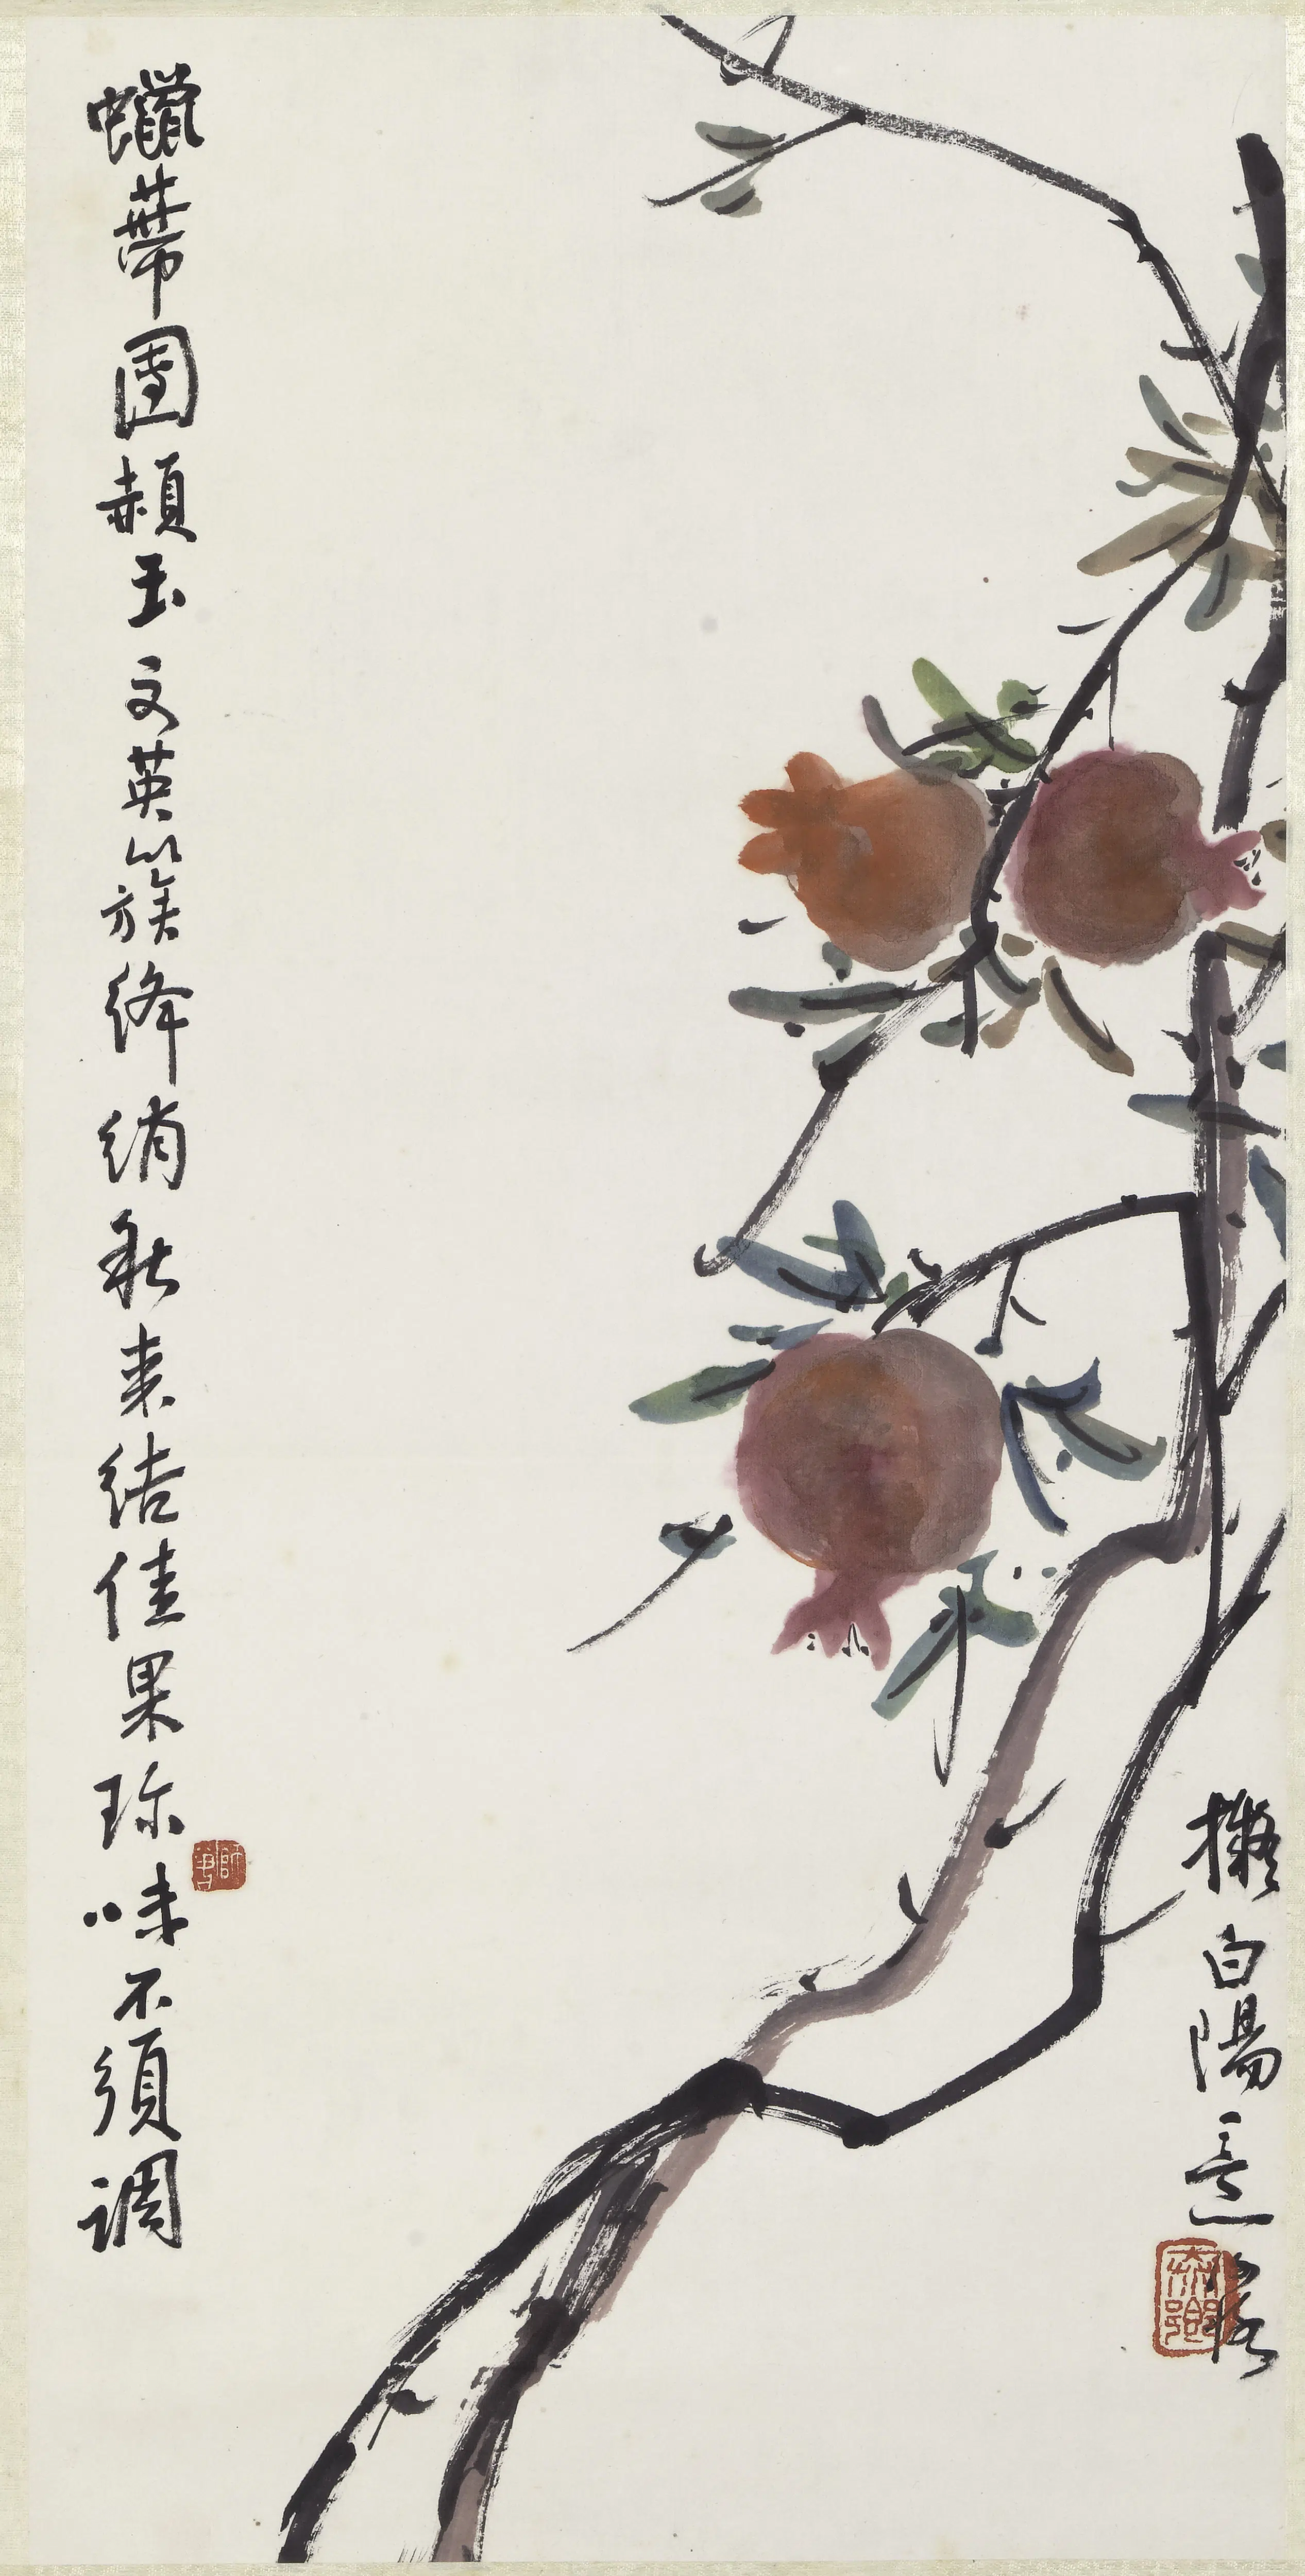 擬白陽意
蠟蒂團頳玉文英簇絳綃秋來結佳果珍味不須調